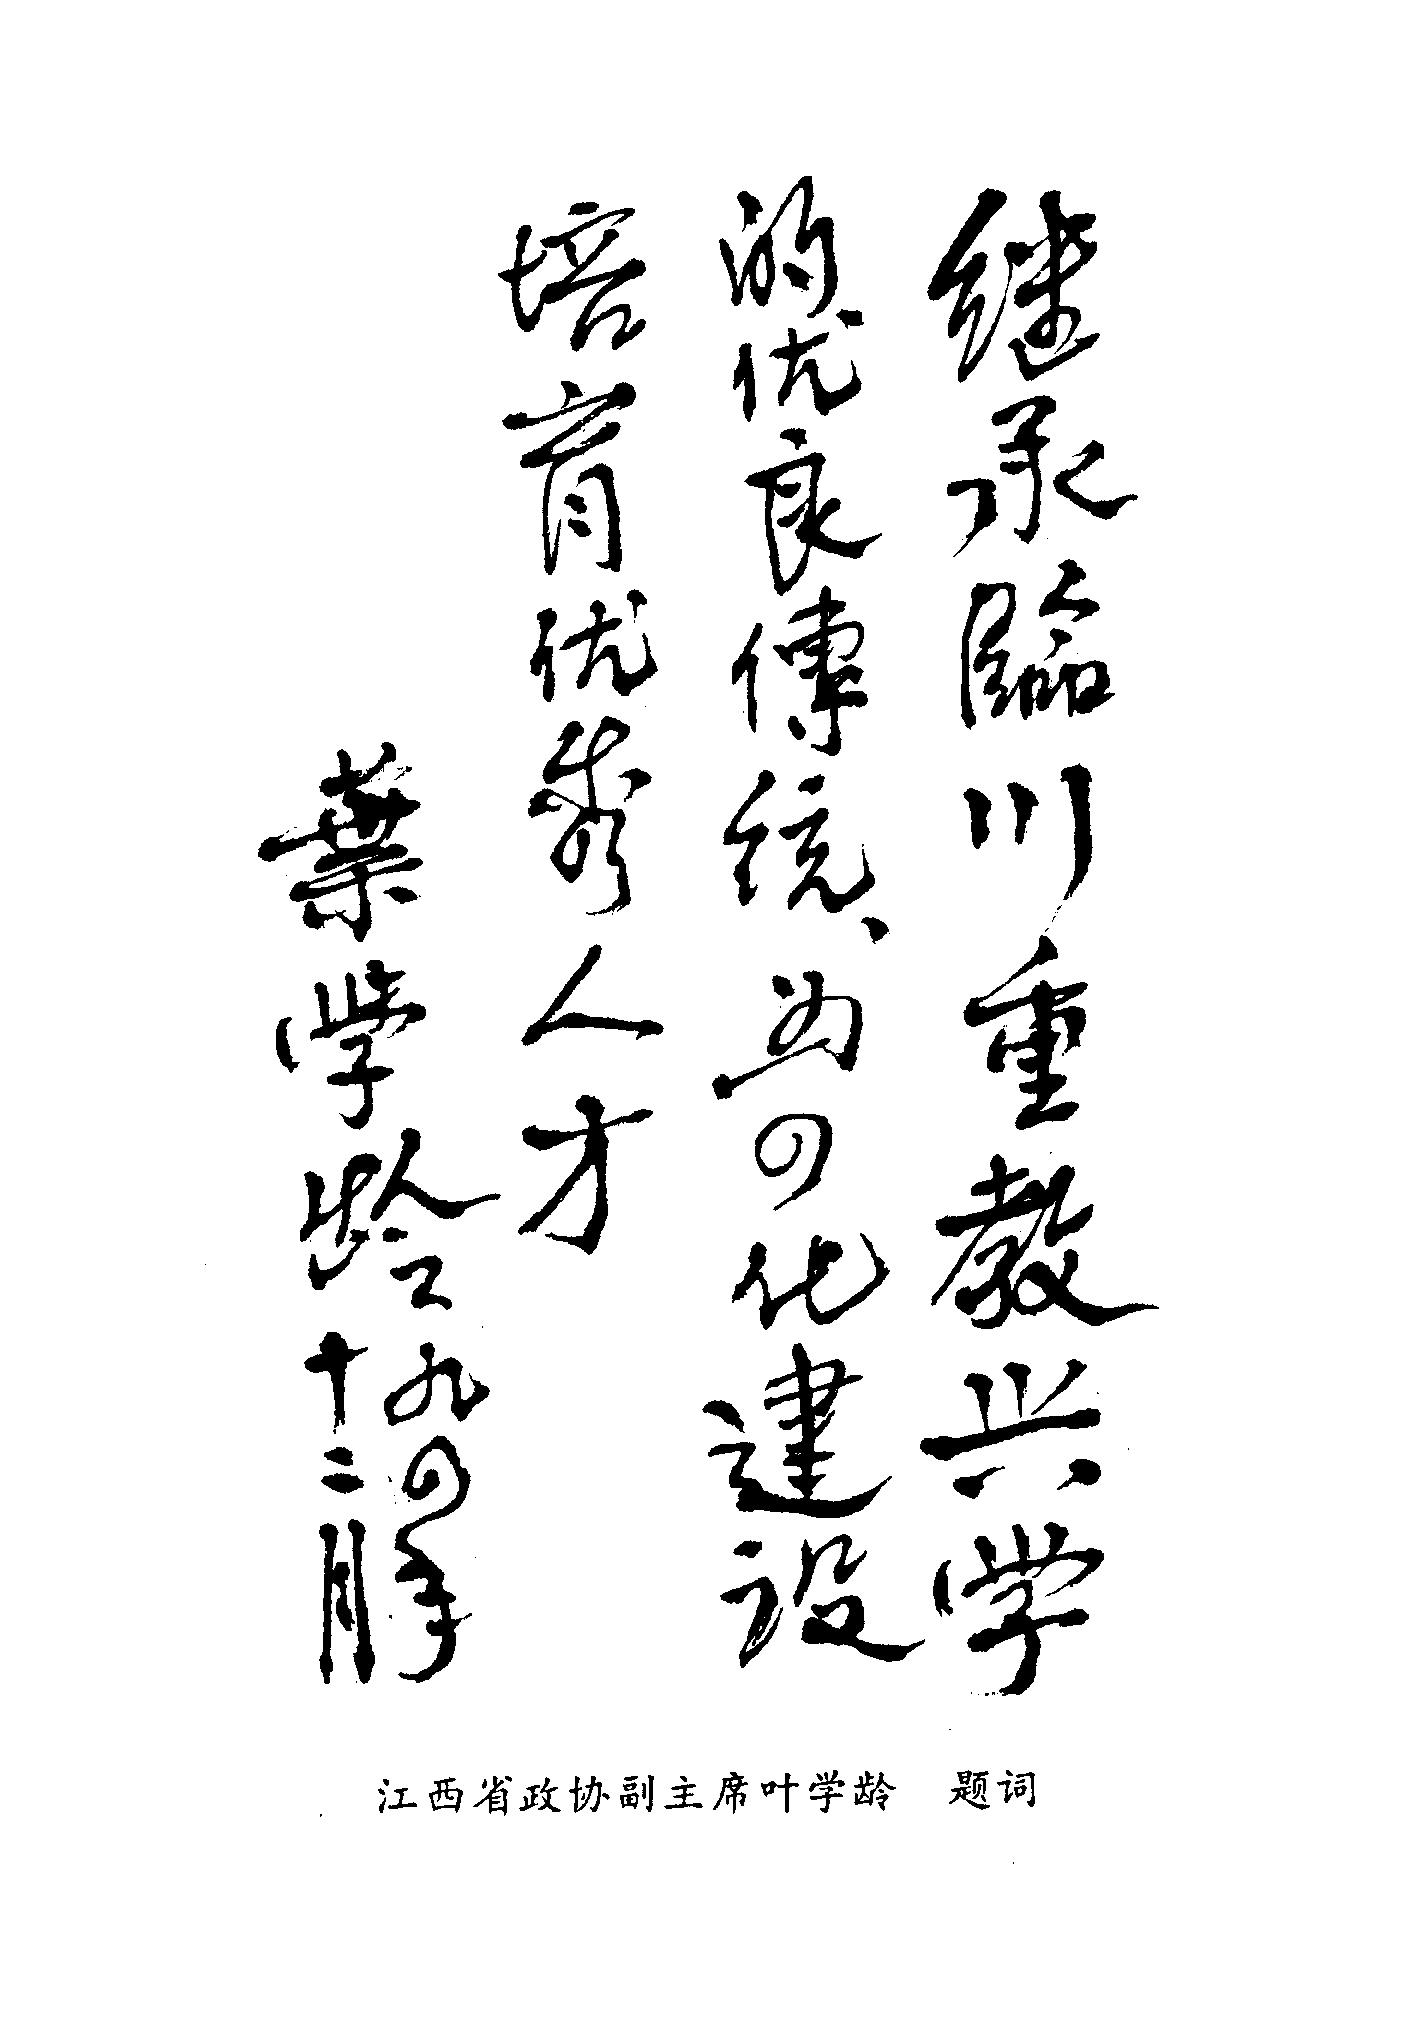 继承臨川重教兴学
的优良傳统、为四化建设
培育优秀人才
葉学龄
九四年
十二月
江西省政协副主席叶学龄 题词